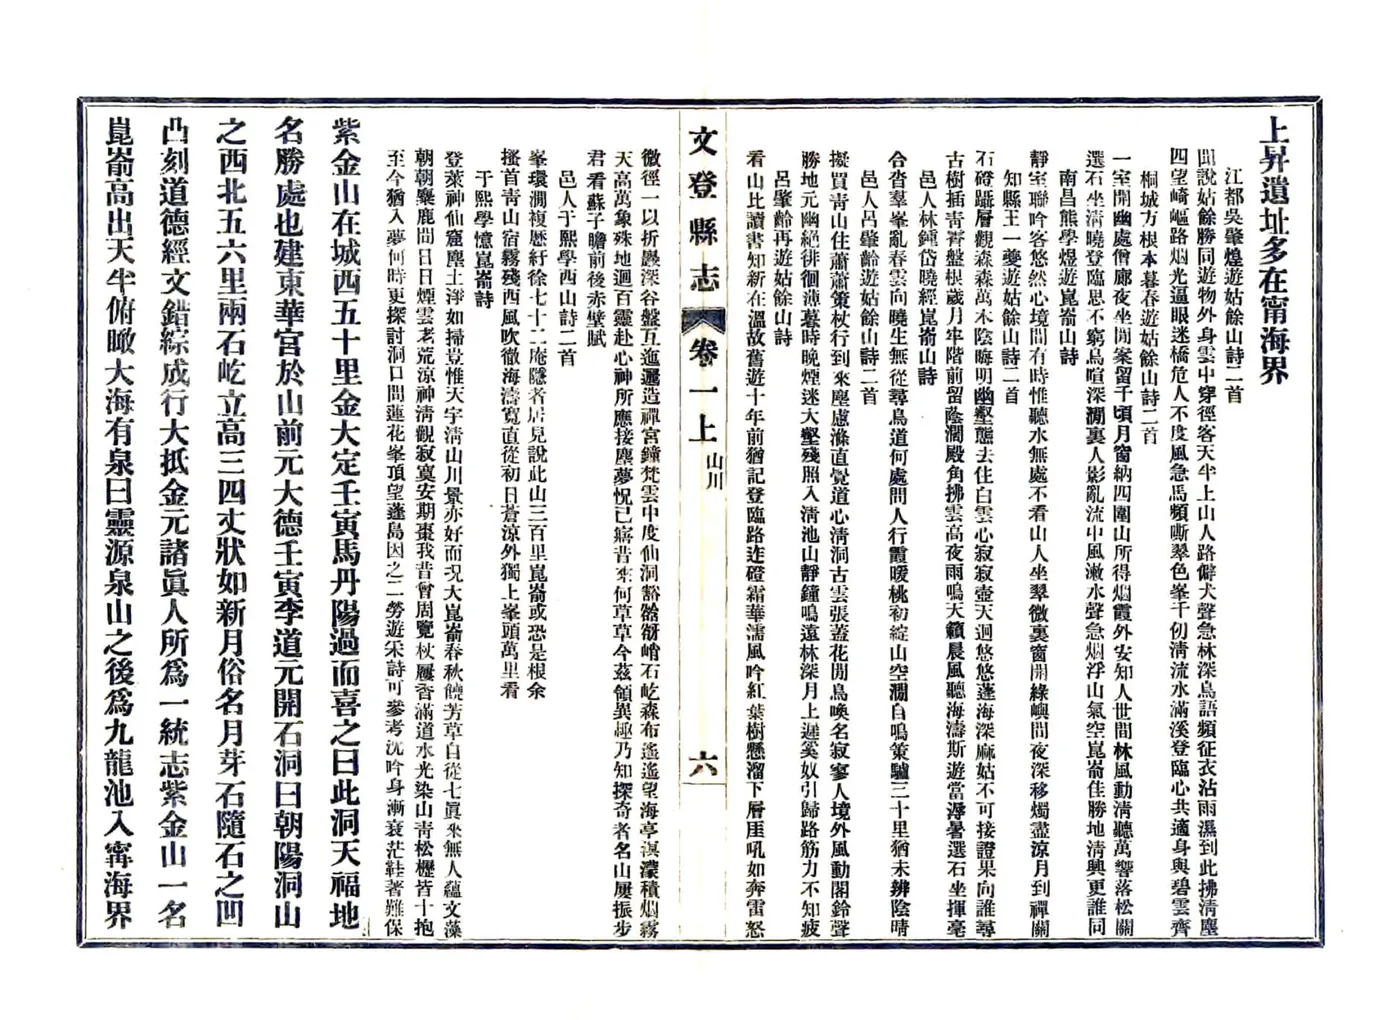 上昇遺址多在甯海界
江都吳肇煌遊姑餘山詩二首
聞說姑餘勝同遊物外身雲中穿徑客天半上山人路僻犬聲急林深鳥語頻征衣沾雨濕到此拂清塵
四望崎嶇路烟光逼眼迷橋危人不度風急馬頻嘶翠色峯千仞清流水滿溪登臨心共適身與碧雲齊
桐城方根本暮春遊姑餘山詩二首
一室開幽處僧廊夜坐閒案留千頃月窗納四圍山所得烟霞外安知人世間林風動清聽萬響落松關
選石坐清曉登臨思不窮鳥喧深澗裏人影亂流中風漱水聲急烟浮山氣空崑崳佳勝地清興更誰同
南昌熊學煜遊崑崳山詩
靜室聯吟客悠然心境間有時惟聽水無處不看山人坐翠微裏窗開綠嶼間夜深移燭盡涼月到禪關
知縣王一夔遊姑餘山詩二首
石磴躡層觀森森萬木陰晦明幽壑態去住白雲心寂寂壺天迥悠悠蓬海深麻姑不可接證果向誰尋
古樹插青霄盤根歲月牢階前留蔭濶殿角拂雲高夜雨鳴天籟晨風聽海濤斯遊當溽暑選石坐揮毫
邑人林鍾岱曉經崑崳山詩
合沓羣峯亂春雲向曉生無從尋鳥道何處問人行霞暖桃初綻山空澗自鳴策驢三十里猶未辨陰晴
邑人呂肇齡遊姑餘山詩二首
擬買青山住蕭蕭策杖行到來塵慮滌直覺道心清洞古雲張蓋花閒鳥喚名寂寥人境外風動閣鈴聲
勝地元幽絕徘徊薄暮時晚煙迷大壑殘照入清池山靜鐘鳴遠林深月上遲奚奴引歸路筋力不知疲
呂肇齡再遊姑餘山詩
看山比讀書知新在溫故舊遊十年前猶記登臨路迮磴霜華濡風吟紅葉樹懸溜下層厓吼如奔雷怒
文登縣志
卷一上
山川
六
微徑一以折巖深谷盤互迤邐造禪宮鐘梵雲中度仙洞豁谽谺峭石屹森布遙遙望海亭溟濛積烟霧
天高萬象殊地迥百靈赴心神所應接塵夢怳已寤昔來何草草今茲領異趣乃知探奇者名山屢振步
君看蘇子瞻前後赤壁賦
邑人于熙學西山詩二首
峯環澗複歷紆徐七十二庵隱者居見說此山三百里崑崳或恐是根余
搔首青山宿霧殘西風吹徹海濤寬直從初日蒼涼外獨上峯頭萬里看
于熙學憶崑崳詩
登萊神仙窟塵土淨如掃豈惟天宇清山川景亦好而況大崑崳春秋饒芳草自從七眞來無人蘊文藻
朝朝麋鹿間日日煙雲老荒涼神清觀寂寞安期棗我昔曾周覽杖屨香滿道水光染山青松櫪皆十抱
至今猶入夢何時更探討洞口問蓮花峯頂望蓬島因之二勞遊宋詩可參考沈吟身漸衰茫鞋著難保
紫金山在城西五十里金大定壬寅馬丹陽過而喜之曰此洞天福地
名勝處也建東華宮於山前元大德壬寅李道元開石洞曰朝陽洞山
之西北五六里兩石屹立高三四丈狀如新月俗名月芽石隨石之凹
凸刻道德經文錯綜成行大抵金元諸眞人所爲一統志紫金山一名
崑崳高出天半俯瞰大海有泉曰靈源泉山之後爲九龍池入甯海界